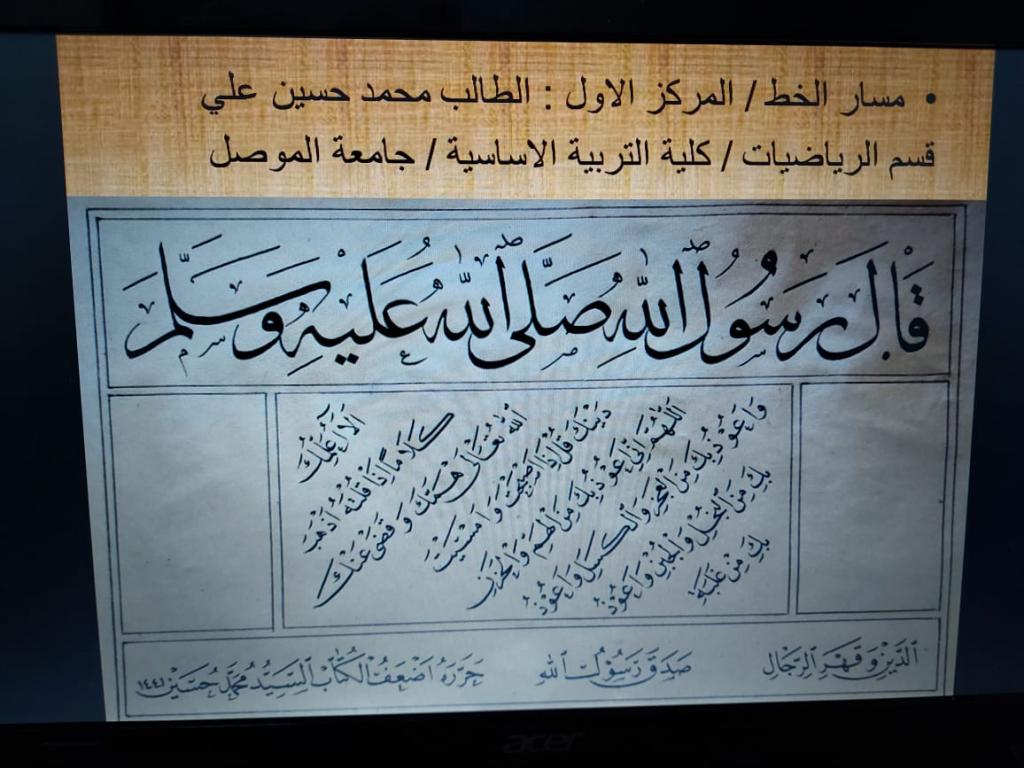 • مسار الخط / المركز الاول : الطالب محمد حسين علي
قسم الرياضيات / كلية التربية الاساسية / جامعة الموصل
قَالَ رَسُولُ اللهِ صَلَّى اللهُ عَلَيْهِ وَسَلَّمَ
الا اعلمك
كلاما اذا قلته اذهب
الله تعالى همك وقضى عنك
دينك قل اذا اصبحت وامسيت
اللهم اني اعوذ بك من الهم والحزن
واعوذ بك من العجز والكسل واعوذ
بك من البخل والجبن واعوذ
بك من غلبة
الدين وقهر الرجال
صدق رسول الله
حرره اضعف الكتاب السيد محمد حسين ١٤٤١
acer